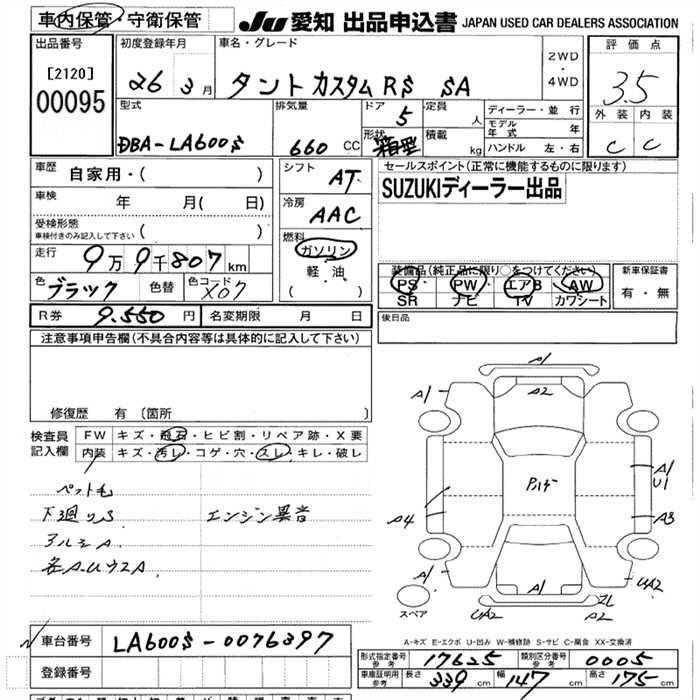 車内保管・守衛保管 JU 愛知 出品申込書 JAPAN USED CAR DEALERS ASSOCIATION
出品番号 [2120] 00095
初度登録年月 26 3月
車名・グレード タントカスタムRS SA
2WD・4WD
評価点 3.5
外装 内装 C C
型式 DBA-LA600S
排気量 660 CC
ドア 5
形状 箱型
定員 人
積載 kg
ディーラー・並行
モデル年式 年
ハンドル 左・右
車歴 自家用・( )
車検 年 月( 日)
受検形態 車検付きのみ記入して下さい ( )
走行 9万9千807km
色 ブラック 色替 色コード X07
シフト AT
冷房 AAC
燃料 ガソリン 軽油 ( )
セールスポイント(正常に機能するものに限ります)
SUZUKIディーラー出品
装備品(純正品に限り○をつけてください)
PS PW エアB AW
SR ナビ TV カワシート
新車保証書 有・無
R券 9.550円 名変期限 月 日
後日品
注意事項申告欄(不具合内容等は具体的に記入して下さい)
修復歴 有 〔箇所 〕
検査員記入欄 FW キズ・飛石・ヒビ割・リペア跡・X要
内装 キズ・汚レ・コゲ・穴・スレ・キレ・破レ
ペット毛
下廻りS エンジン異音
アルミA
各A.Uウス A
A1
A1 A2 A1
A1 U1
A4 A3
A1 A1 UA2
UA2 A2
スペア
A-キズ E-エクボ U-凹み W-補修跡 S-サビ C-腐食 XX-交換済
車台番号 LA600S-0076397
登録番号
形式指定番号 参考 17625 類別区分番号 参考 0005
車庫証明用 参考 長さ 339cm 幅 147cm 高さ 175cm